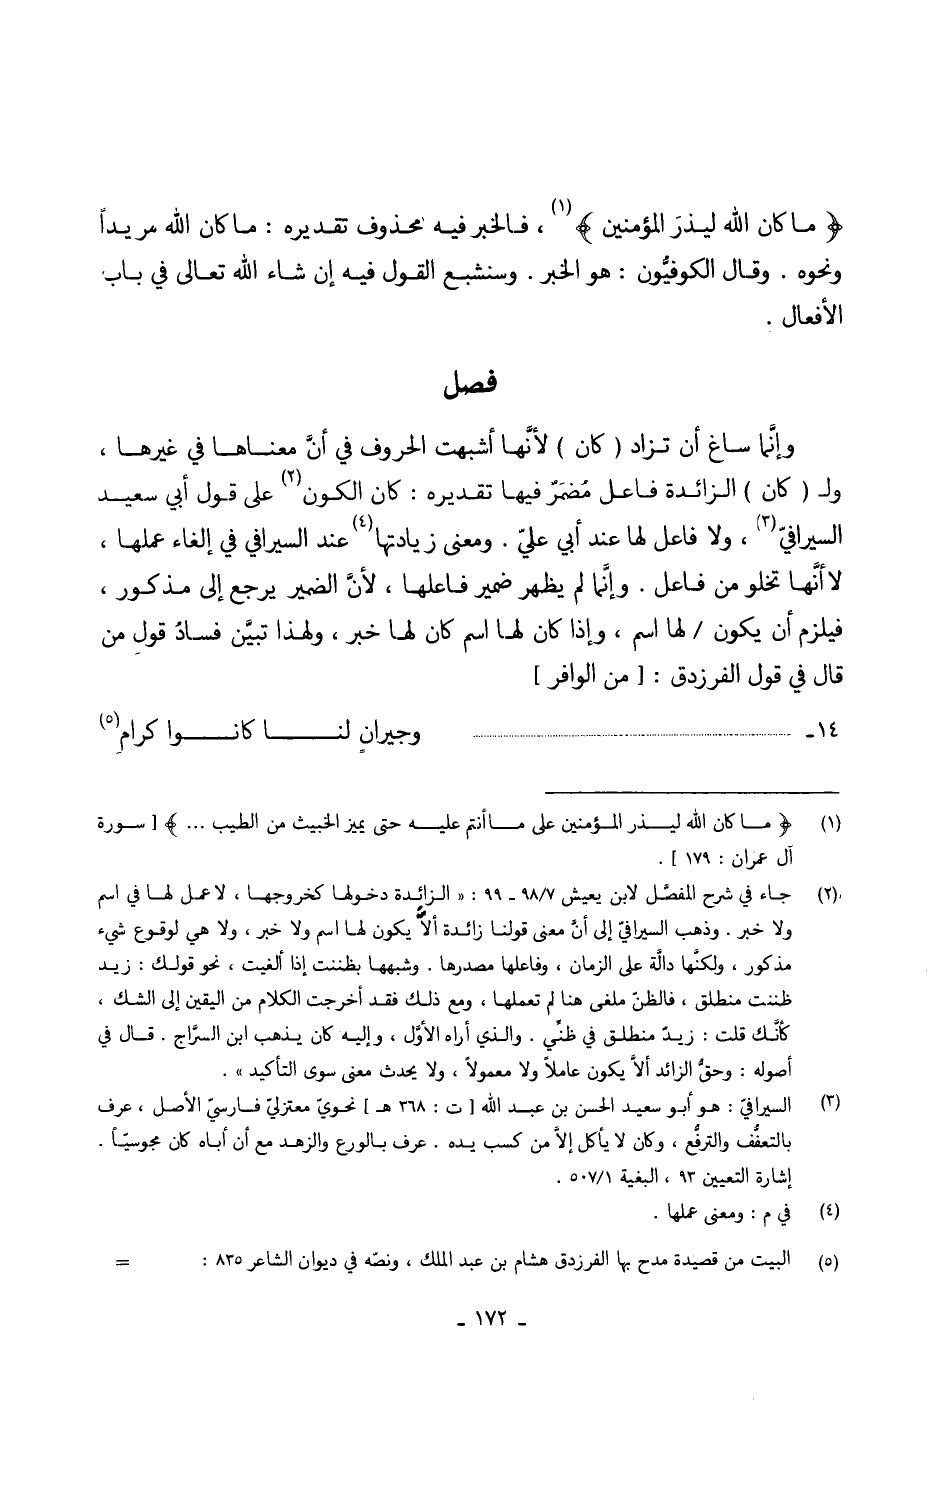 ﴿ ما كان الله ليذرَ المؤمنين ﴾(١) ، فالخبر فيه محذوف تقديره : ما كان الله مريداً
ونحوه . وقال الكوفيُّون : هو الخبر . وسنشبع القول فيه إن شاء الله تعالى في باب
الأفعال .
فصل
وإنَّما ساغ أن تزاد ( كان ) لأنَّها أشبهت الحروف في أنَّ معناها في غيرها ،
ولـ ( كان ) الزائدة فاعل مُضمَرٌ فيها تقديره : كان الكون(٢) على قول أبي سعيد
السيرافيّ(٣) ، ولا فاعل لها عند أبي عليّ . ومعنى زيادتها(٤) عند السيرافي في إلغاء عملها ،
لا أنَّها تخلو من فاعل . وإنَّما لم يظهر ضمير فاعلها ، لأنَّ الضمير يرجع إلى مذكور ،
فيلزم أن يكون / لها اسم ، وإذا كان لها اسم كان لها خبر ، ولهذا تبيَّن فسادُ قولِ من
قال في قول الفرزدق : [ من الوافر ]
١٤ـ .................... وجيرانٍ لنـا كانـوا كرامِ(٥)
(١) ﴿ ما كان الله ليذر المؤمنين على ما أنتم عليه حتى يميز الخبيث من الطيب ... ﴾ [ سورة
آل عمران : ١٧٩ ] .
(٢) جاء في شرح المفصَّل لابن يعيش ٩٨/٧ ـ ٩٩ : « الزائدة دخولها كخروجها ، لا عمل لها في اسم
ولا خبر . وذهب السيرافيّ إلى أنَّ معنى قولنا زائدة ألاَّ يكون لها اسم ولا خبر ، ولا هي لوقوع شيء
مذكور ، ولكنَّها دالَّة على الزمان ، وفاعلها مصدرها . وشبهها بظننت إذا ألغيت ، نحو قولك : زيد
ظننت منطلق ، فالظنّ ملغى هنا لم تعملها ، ومع ذلك فقد أخرجت الكلام من اليقين إلى الشك ،
كأنَّك قلت : زيدٌ منطلق في ظنِّي . والذي أراه الأوَّل ، وإليه كان يذهب ابن السرَّاج . قال في
أصوله : وحقُّ الزائد ألاَّ يكون عاملاً ولا معمولاً ، ولا يحدث معنى سوى التأكيد » .
(٣) السيرافيّ : هو أبو سعيد الحسن بن عبد الله [ ت : ٣٦٨ هـ ] نحويّ معتزليّ فارسيّ الأصل ، عرف
بالتعفُّف والترفُّع ، وكان لا يأكل إلاَّ من كسب يده . عرف بالورع والزهد مع أن أباه كان مجوسيّاً .
إشارة التعيين ٩٣ ، البغية ٥٠٧/١ .
(٤) في م : ومعنى عملها .
(٥) البيت من قصيدة مدح بها الفرزدق هشام بن عبد الملك ، ونصّه في ديوان الشاعر ٨٣٥ : =
ـ ١٧٢ ـ